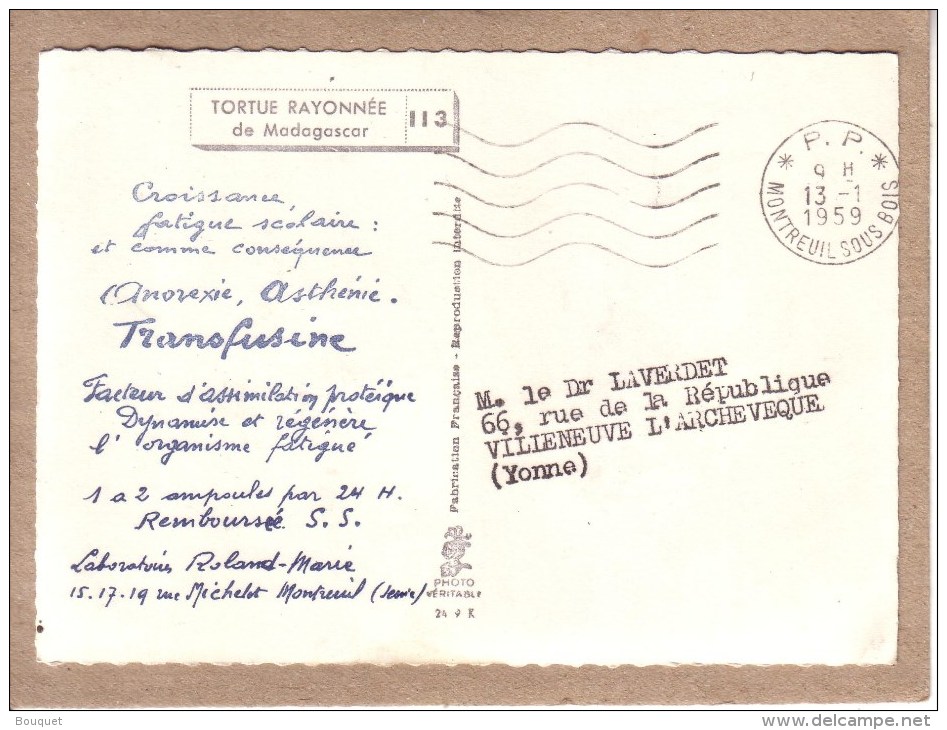 TORTUE RAYONNÉE
de Madagascar
113
P. P.
9 H
13 -1
1959
MONTREUIL SOUS BOIS
Croissance,
fatigue scolaire :
et comme conséquence
Anorexie, Asthénie.
Transfusine
Facteur d'assimilation protéïque
Dynamise et régénère
l'organisme fatigué
1 a 2 ampoules par 24 H.
Remboursée S. S.
Laboratoires Roland-Marie
15.17.19 rue Michelet Montreuil (Seine)
Fabrication Française - Reproduction Interdite
PHOTO
VÉRITABLE
24 9 K
M. le Dr LAVERDET
66, rue de la République
VILIENEUVE L'ARCHEVEQUE
(Yonne)
Bouquet
www.delcampe.net